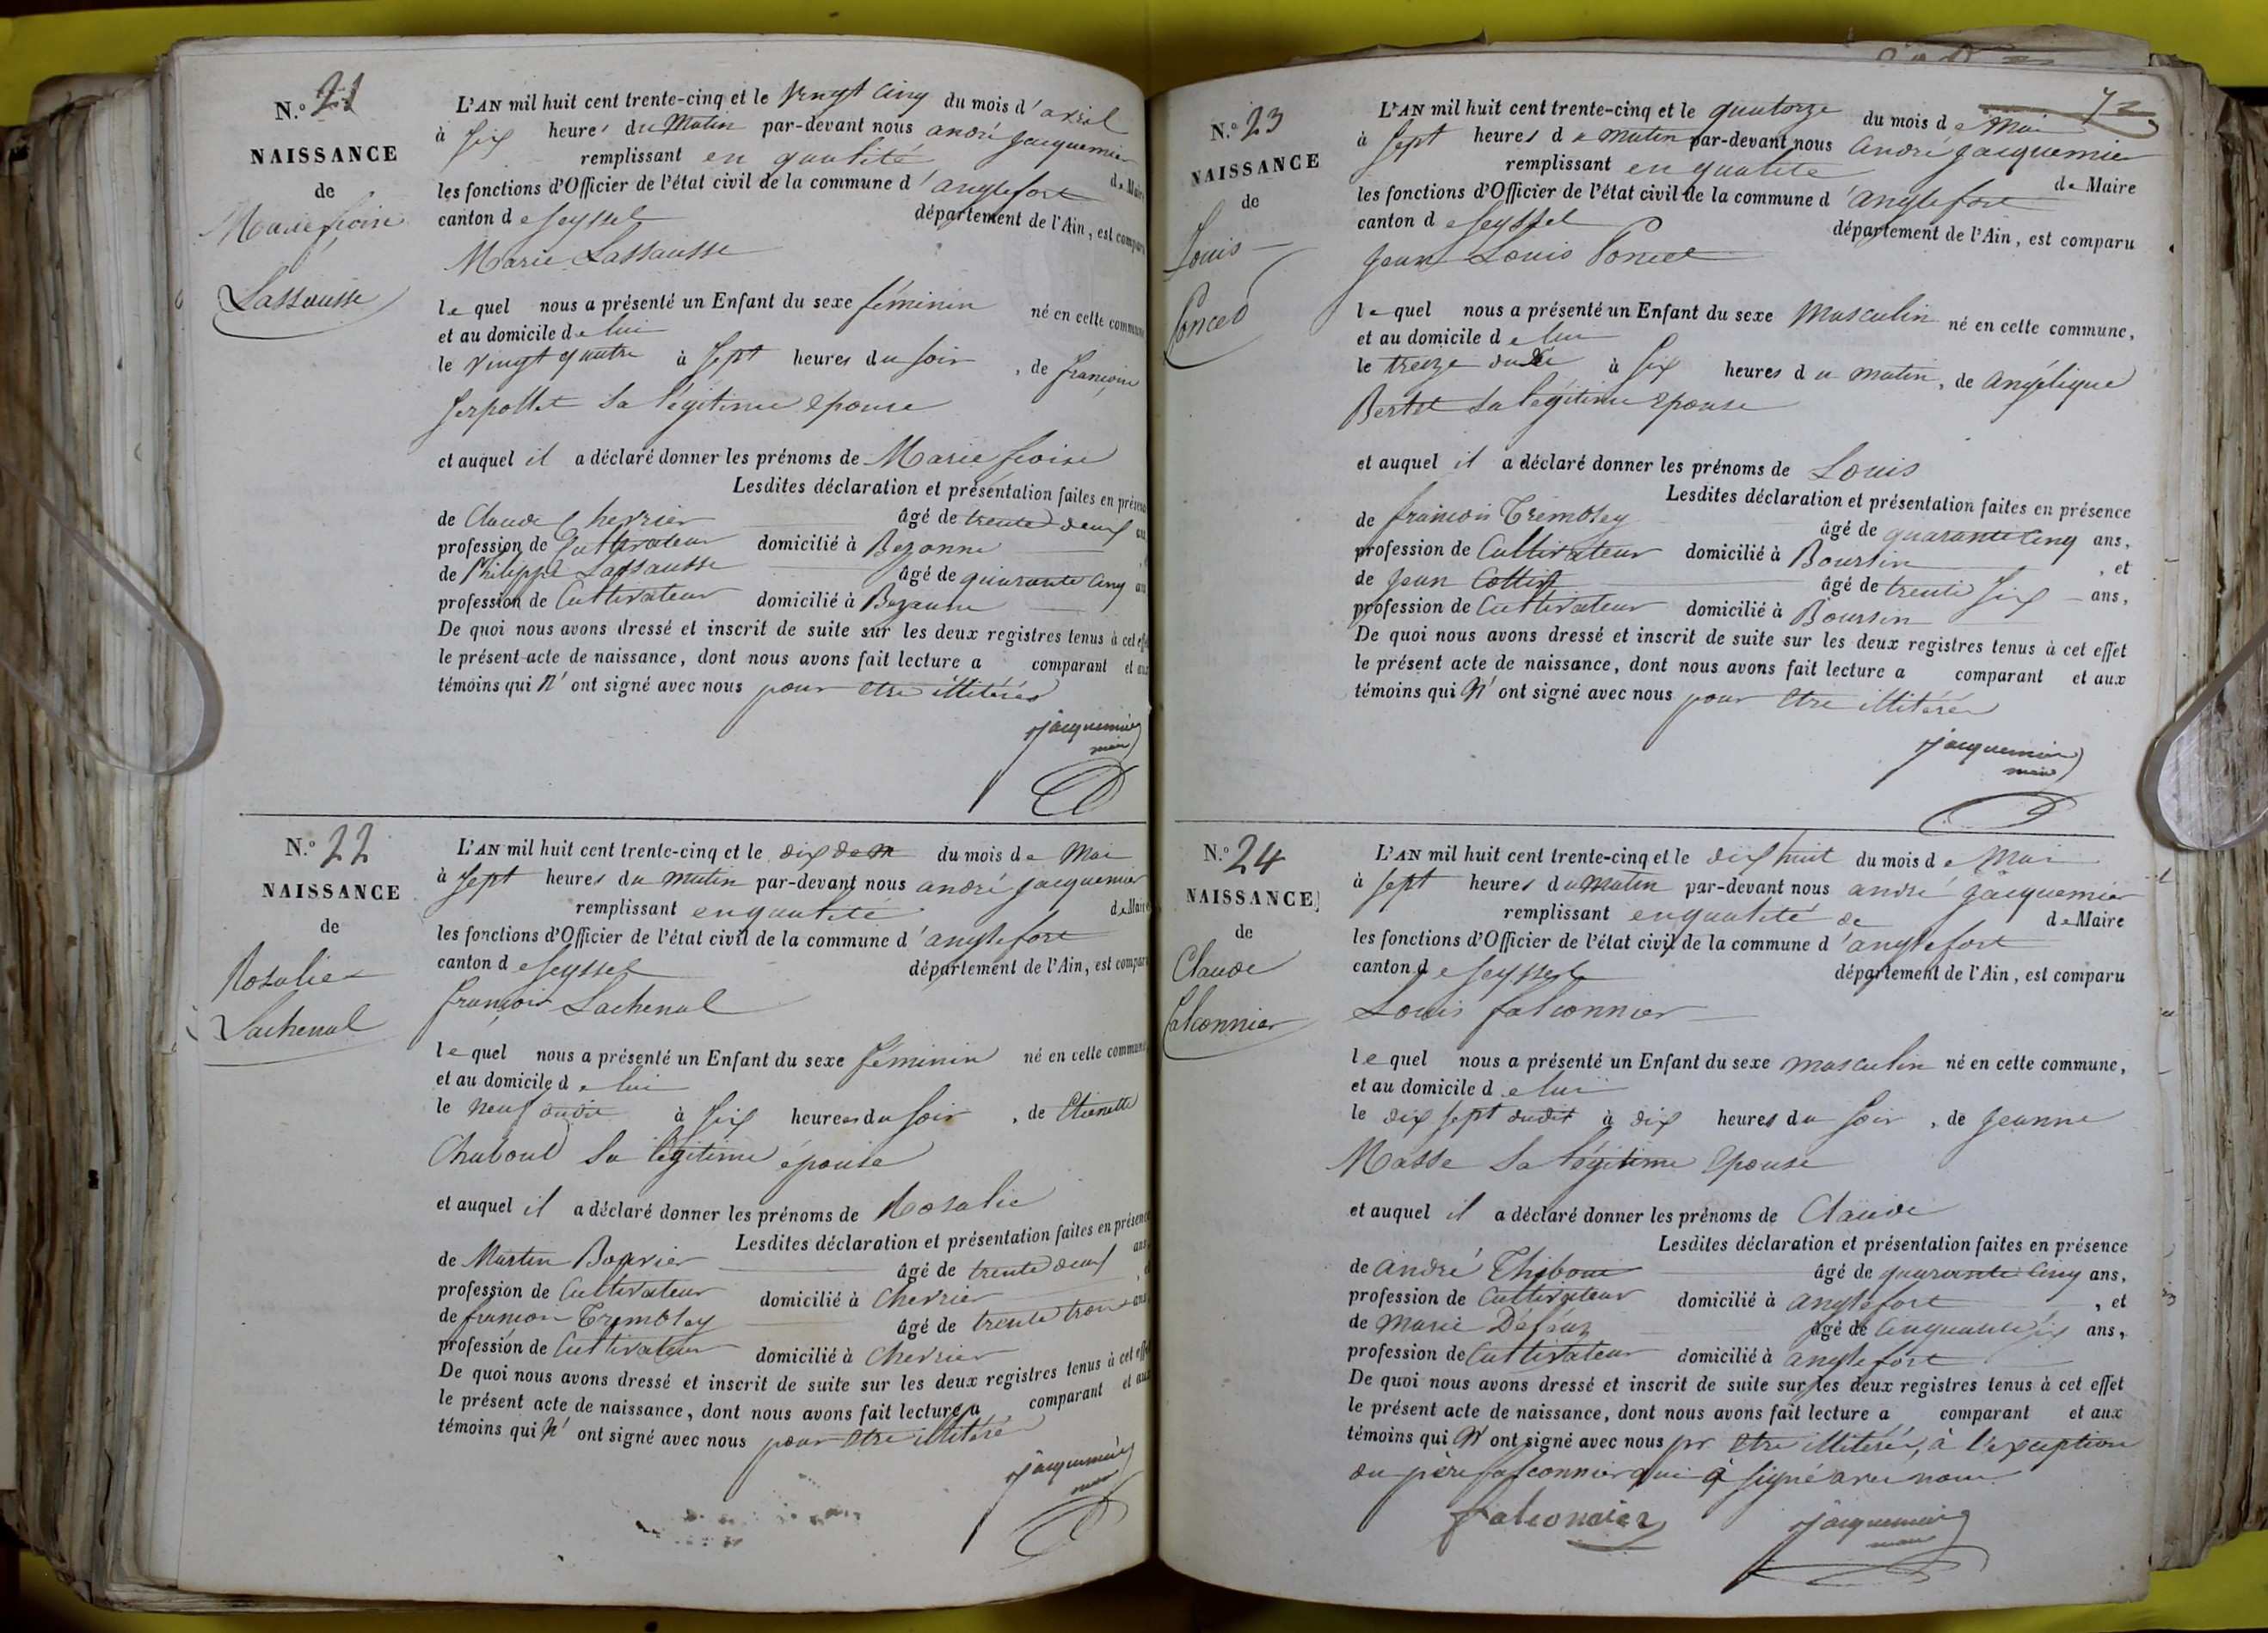 N.° 21
NAISSANCE
de
Marie
Lassausse
L'AN mil huit cent trente-cinq et le vingt cinq du mois d'avril
à six heures du matin par-devant nous andré jacquemier
remplissant en qualité de Maire
les fonctions d'Officier de l'état civil de la commune d'anglefort
canton de Seyssel département de l'Ain, est comparu
Marie Lassausse
lequel nous a présenté un Enfant du sexe féminin né en cette commune
et au domicile de lui
le vingt quatre à sept heures du soir, de françoise
sa légitime épouse
et auquel il a déclaré donner les prénoms de Marie
Lesdites déclaration et présentation faites en présence
de Claude Chervier âgé de trente deux ans
profession de Cultivateur domicilié à Bezonne
de Philippe Lassausse âgé de quarante cinq ans
profession de Cultivateur domicilié à Bezonne
De quoi nous avons dressé et inscrit de suite sur les deux registres tenus à cet effet
le présent acte de naissance, dont nous avons fait lecture a comparant et aux
témoins qui n'ont signé avec nous pour etre illitérés
jacquemier
maire
N.° 22
NAISSANCE
de
Rosalie
Lachenal
L'AN mil huit cent trente-cinq et le dix du mois de Mai
à sept heures du matin par-devant nous andré jacquemier
remplissant en qualité de Maire
les fonctions d'Officier de l'état civil de la commune d'anglefort
canton de Seyssel département de l'Ain, est comparu
françois Lachenal
lequel nous a présenté un Enfant du sexe féminin né en cette commune
et au domicile de lui
le neuf dudit à six heures du soir, de Etienette
Chaboud sa légitime épouse
et auquel il a déclaré donner les prénoms de Rosalie
Lesdites déclaration et présentation faites en présence
de Martin Bouvier âgé de trente deux ans,
profession de Cultivateur domicilié à Chevrier, et
de françois Trembley âgé de trente trois ans
profession de Cultivateur domicilié à Chevrier
De quoi nous avons dressé et inscrit de suite sur les deux registres tenus à cet effet
le présent acte de naissance, dont nous avons fait lecture a comparant et aux
témoins qui n'ont signé avec nous pour etre illitéré
jacquemier
maire
72
N.° 23
NAISSANCE
de
Louis
Poncet
L'AN mil huit cent trente-cinq et le quatorze du mois de Mai
à sept heures du matin par-devant nous andré jacquemier
remplissant en qualité de Maire
les fonctions d'Officier de l'état civil de la commune d'anglefort
canton de Seyssel département de l'Ain, est comparu
jean Louis Poncet
lequel nous a présenté un Enfant du sexe Masculin né en cette commune,
et au domicile de lui
le treize dudit à six heures du matin, de angélique
Bertet sa légitime Epouse
et auquel il a déclaré donner les prénoms de Louis
Lesdites déclaration et présentation faites en présence
de françois Trembley âgé de quarante cinq ans,
profession de Cultivateur domicilié à Boursin, et
de jean Cottin âgé de trente six ans,
profession de Cultivateur domicilié à Boursin
De quoi nous avons dressé et inscrit de suite sur les deux registres tenus à cet effet
le présent acte de naissance, dont nous avons fait lecture a comparant et aux
témoins qui n'ont signé avec nous pour etre illitéré
jacquemier
maire
N.° 24
NAISSANCE
de
Claude
falconnier
L'AN mil huit cent trente-cinq et le dix huit du mois de Mai
à sept heures du matin par-devant nous andré jacquemier
remplissant en qualité de de Maire
les fonctions d'Officier de l'état civil de la commune d'anglefort
canton de Seyssel département de l'Ain, est comparu
Louis falconnier
lequel nous a présenté un Enfant du sexe masculin né en cette commune,
et au domicile de lui
le dix sept dudit à dix heures du soir, de jeanne
Masse sa légitime Epouse
et auquel il a déclaré donner les prénoms de Claude
Lesdites déclaration et présentation faites en présence
de andré âgé de quarante cinq ans,
profession de Cultivateur domicilié à anglefort, et
de Marie âgé de cinquante six ans,
profession de Cultivateur domicilié à anglefort
De quoi nous avons dressé et inscrit de suite sur les deux registres tenus à cet effet
le présent acte de naissance, dont nous avons fait lecture a comparant et aux
témoins qui n'ont signé avec nous pr etre illitéré, à l'exception
du père falconnier qui a signé avec nous
falconnier jacquemier
maire